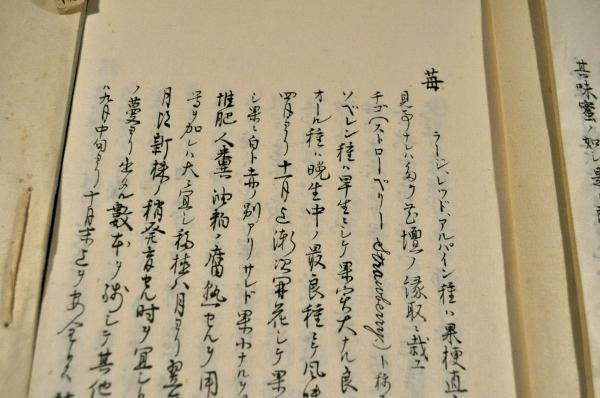 苺
ラージ、レッド、アルパイン種ハ果梗直
見事ナレハ多ク花壇ノ縁取ニ栽エ
チゴ(ストローベリー Strawberry.)ト称
ソベレン種ハ早生ニシテ果実大ナル良
オール種ハ晩生中ノ最良種ニテ風味
四月ヨリ十一月迄漸次開花シテ果
シ果ニ白ト赤ノ別アリサレド果小ナル
堆肥人糞油粕ノ腐熟セルヲ用
等ヲ加レハ大ニ宜シ移植八月ヨリ翌
月頃新株ノ稍発育セル時ヲ宜シ
ノ蔓ヨリ生スル数本ヲ残シテ其他
ハ九月中旬ヨリ十月末迄ヲ安全トス
其味蜜ノ如シ